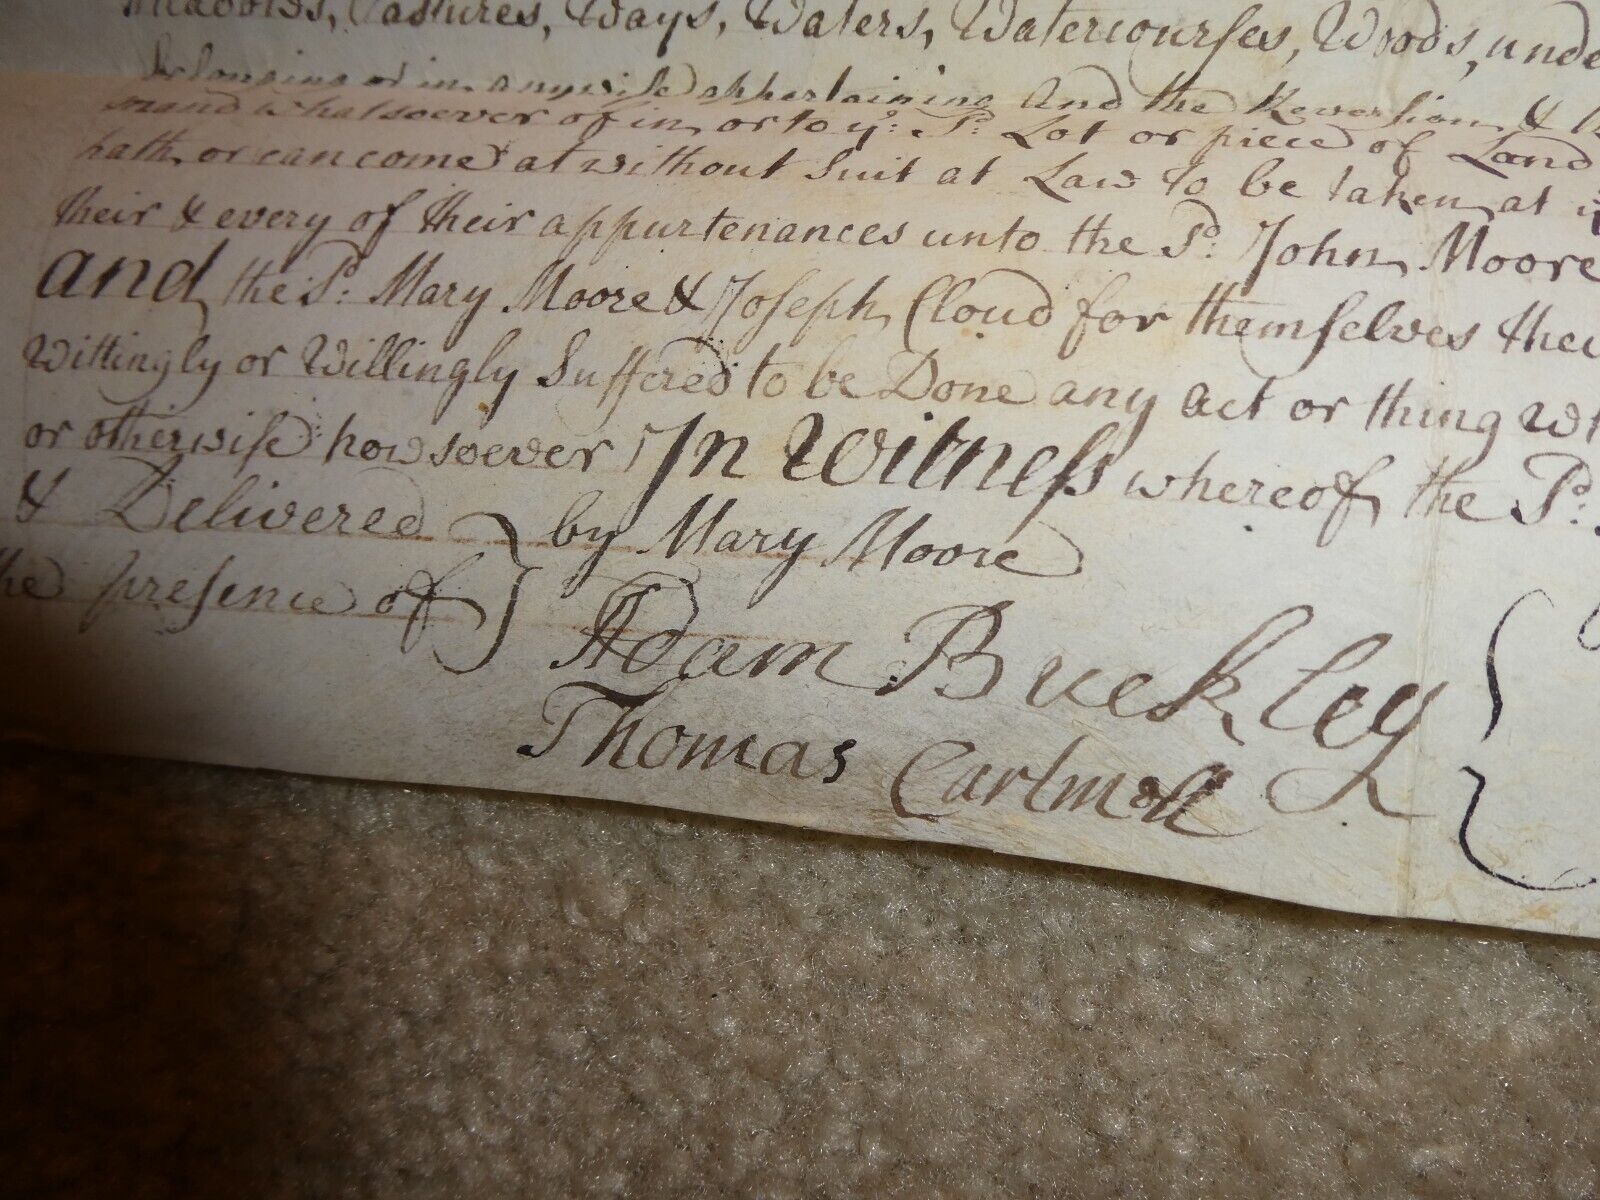 Meadows, Pastures, Ways, Waters, Watercourses, Woods, unde
Belonging or in anywise appertaining And the Reversion &
mand whatsoever of in, or to yᵉ: Sᵈ: Lot or piece of Land
hath, or can come at without Suit at Law To be taken, at
their & every of their appurtenances unto the Sᵈ: John Moore
and the Sᵈ: Mary Moore & Joseph Cloud for themselves thei
wittingly or Willingly Suffered to be Done any Act or thing
or otherwise howsoever In Witness whereof the Sᵈ:
& Delivered by Mary Moore
the presence of
Adam Buckley
Thomas Cartmell